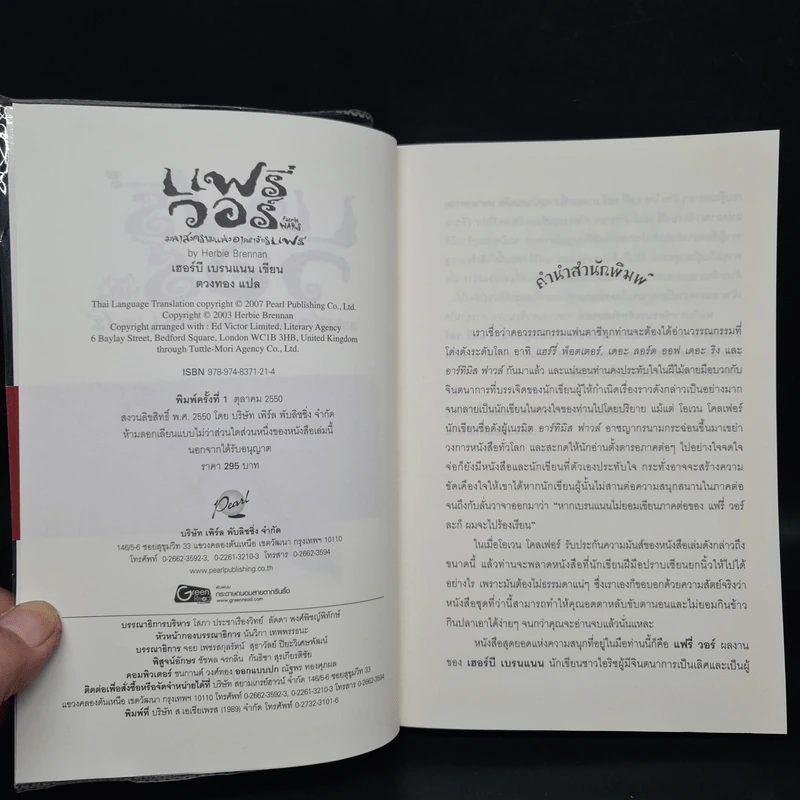 แฟรี่
วอร์
Faerie
WARS
มหาสงครามแห่งอาณาจักรแฟรี่
by Herbie Brennan
เฮอร์บี เบรนแนน เขียน
ดวงทอง แปล
Thai Language Translation copyright © 2007 Pearl Publishing Co., Ltd.
Copyright © 2003 Herbie Brennan
Copyright arranged with : Ed Victor Limited, Literary Agency
6 Baylay Street, Bedford Square, London WC1B 3HB, United Kingdom
through Tuttle-Mori Agency Co., Ltd.
ISBN 978-974-8371-21-4
พิมพ์ครั้งที่ 1 ตุลาคม 2550
สงวนลิขสิทธิ์ พ.ศ. 2550 โดย บริษัท เพิร์ล พับลิชชิ่ง จำกัด
ห้ามลอกเลียนแบบไม่ว่าส่วนใดส่วนหนึ่งของหนังสือเล่มนี้
นอกจากได้รับอนุญาต
ราคา 295 บาท
Pearl
บริษัท เพิร์ล พับลิชชิ่ง จำกัด
146/5-6 ซอยสุขุมวิท 33 แขวงคลองตันเหนือ เขตวัฒนา กรุงเทพฯ 10110
โทรศัพท์ 0-2662-3092-3, 0-2261-3210-3 โทรสาร 0-2662-3594
www.pearlpublishing.co.th
Green
กระดาษถนอมสายตากรีนรี้ด
www.greenread.com
บรรณาธิการบริหาร โสภา ประชาเรืองวิทย์ ลัคดา พงศ์พิชญ์พิทักษ์
หัวหน้ากองบรรณาธิการ นันวิภา เทพพรรธนะ
บรรณาธิการ จอย เพรรสกุลรัตน์ สุธาวัลย์ ปิยะวิเศษพัฒน์
พิสูจน์อักษร ชัชพล จรกลิ่น กันธิชา สุรเกียรติชัย
คอมพิวเตอร์ ชนกานต์ วงศ์ทอง ออกแบบปก ณัฐพร ทองศุภผล
ติดต่อเพื่อสั่งซื้อหรือจัดจำหน่ายได้ที่ บริษัท สยามเกรย์ฮาวน์ จำกัด 146/5-6 ซอยสุขุมวิท 33
แขวงคลองตันเหนือ เขตวัฒนา กรุงเทพฯ 10110 โทรศัพท์ 0-2662-3092-3, 0-2261-3210-3 โทรสาร 0-2662-3594
พิมพ์ที่ บริษัท ส.เอเซียเพรส (1989) จำกัด โทรศัพท์ 0-2732-3101-6
คำนำสำนักพิมพ์
เราเชื่อว่าคอวรรณกรรมแฟนตาซีทุกท่านจะต้องได้อ่านวรรณกรรมที่
โด่งดังระดับโลก อาทิ แฮร์รี่ พ็อตเตอร์, เดอะ ลอร์ด ออฟ เดอะ ริง และ
อาร์ทิมิส ฟาวล์ กันมาแล้ว และแน่นอนท่านคงประทับใจในฝีไม้ลายมือบวกกับ
จินตนาการที่บรรเจิดของนักเขียนผู้ให้กำเนิดเรื่องราวดังกล่าวเป็นอย่างมาก
จนกลายเป็นนักเขียนในดวงใจของท่านไปโดยปริยาย แม้แต่ โอเวน โคลเฟอร์
นักเขียนชื่อดังผู้เนรมิต อาร์ทิมิส ฟาวล์ อาชญากรนามกระฉ่อนขึ้นมาเขย่า
วงการหนังสือทั่วโลก และสะกดให้นักอ่านตั้งตารอภาคต่อๆ ไปอย่างใจจดใจ
จ่อก็ยังมีหนังสือและนักเขียนที่ตัวเองประทับใจ กระทั่งอาจจะสร้างความ
ขัดเคืองใจให้เขาได้หากนักเขียนผู้นั้นไม่สานต่อความสนุกสนานในภาคต่อ
จนถึงกับลั่นวาจาออกมาว่า "หากเบรนแนนไม่ยอมเขียนภาคต่อของ แฟรี่ วอร์
ละก็ ผมจะไปร้องเรียน"
ในเมื่อโอเวน โคลเฟอร์ รับประกันความมันส์ของหนังสือเล่มดังกล่าวถึง
ขนาดนี้ แล้วท่านจะพลาดหนังสือที่นักเขียนฝีมือปราบเซียนยกนิ้วให้ไปได้
อย่างไร เพราะมันต้องไม่ธรรมดาแน่ๆ ซึ่งเราเองก็ขอบอกด้วยความสัตย์จริงว่า
หนังสือชุดที่ว่านี้สามารถทำให้คุณอดตาหลับขับตานอนและไม่ยอมกินข้าว
กินปลาเอาได้ง่ายๆ จนกว่าคุณจะอ่านจบแล้วนั่นแหละ
หนังสือสุดยอดแห่งความสนุกที่อยู่ในมือท่านนี้ก็คือ แฟรี่ วอร์ ผลงาน
ของ เฮอร์บี เบรนแนน นักเขียนชาวไอริชผู้มีจินตนาการเป็นเลิศและเป็นผู้